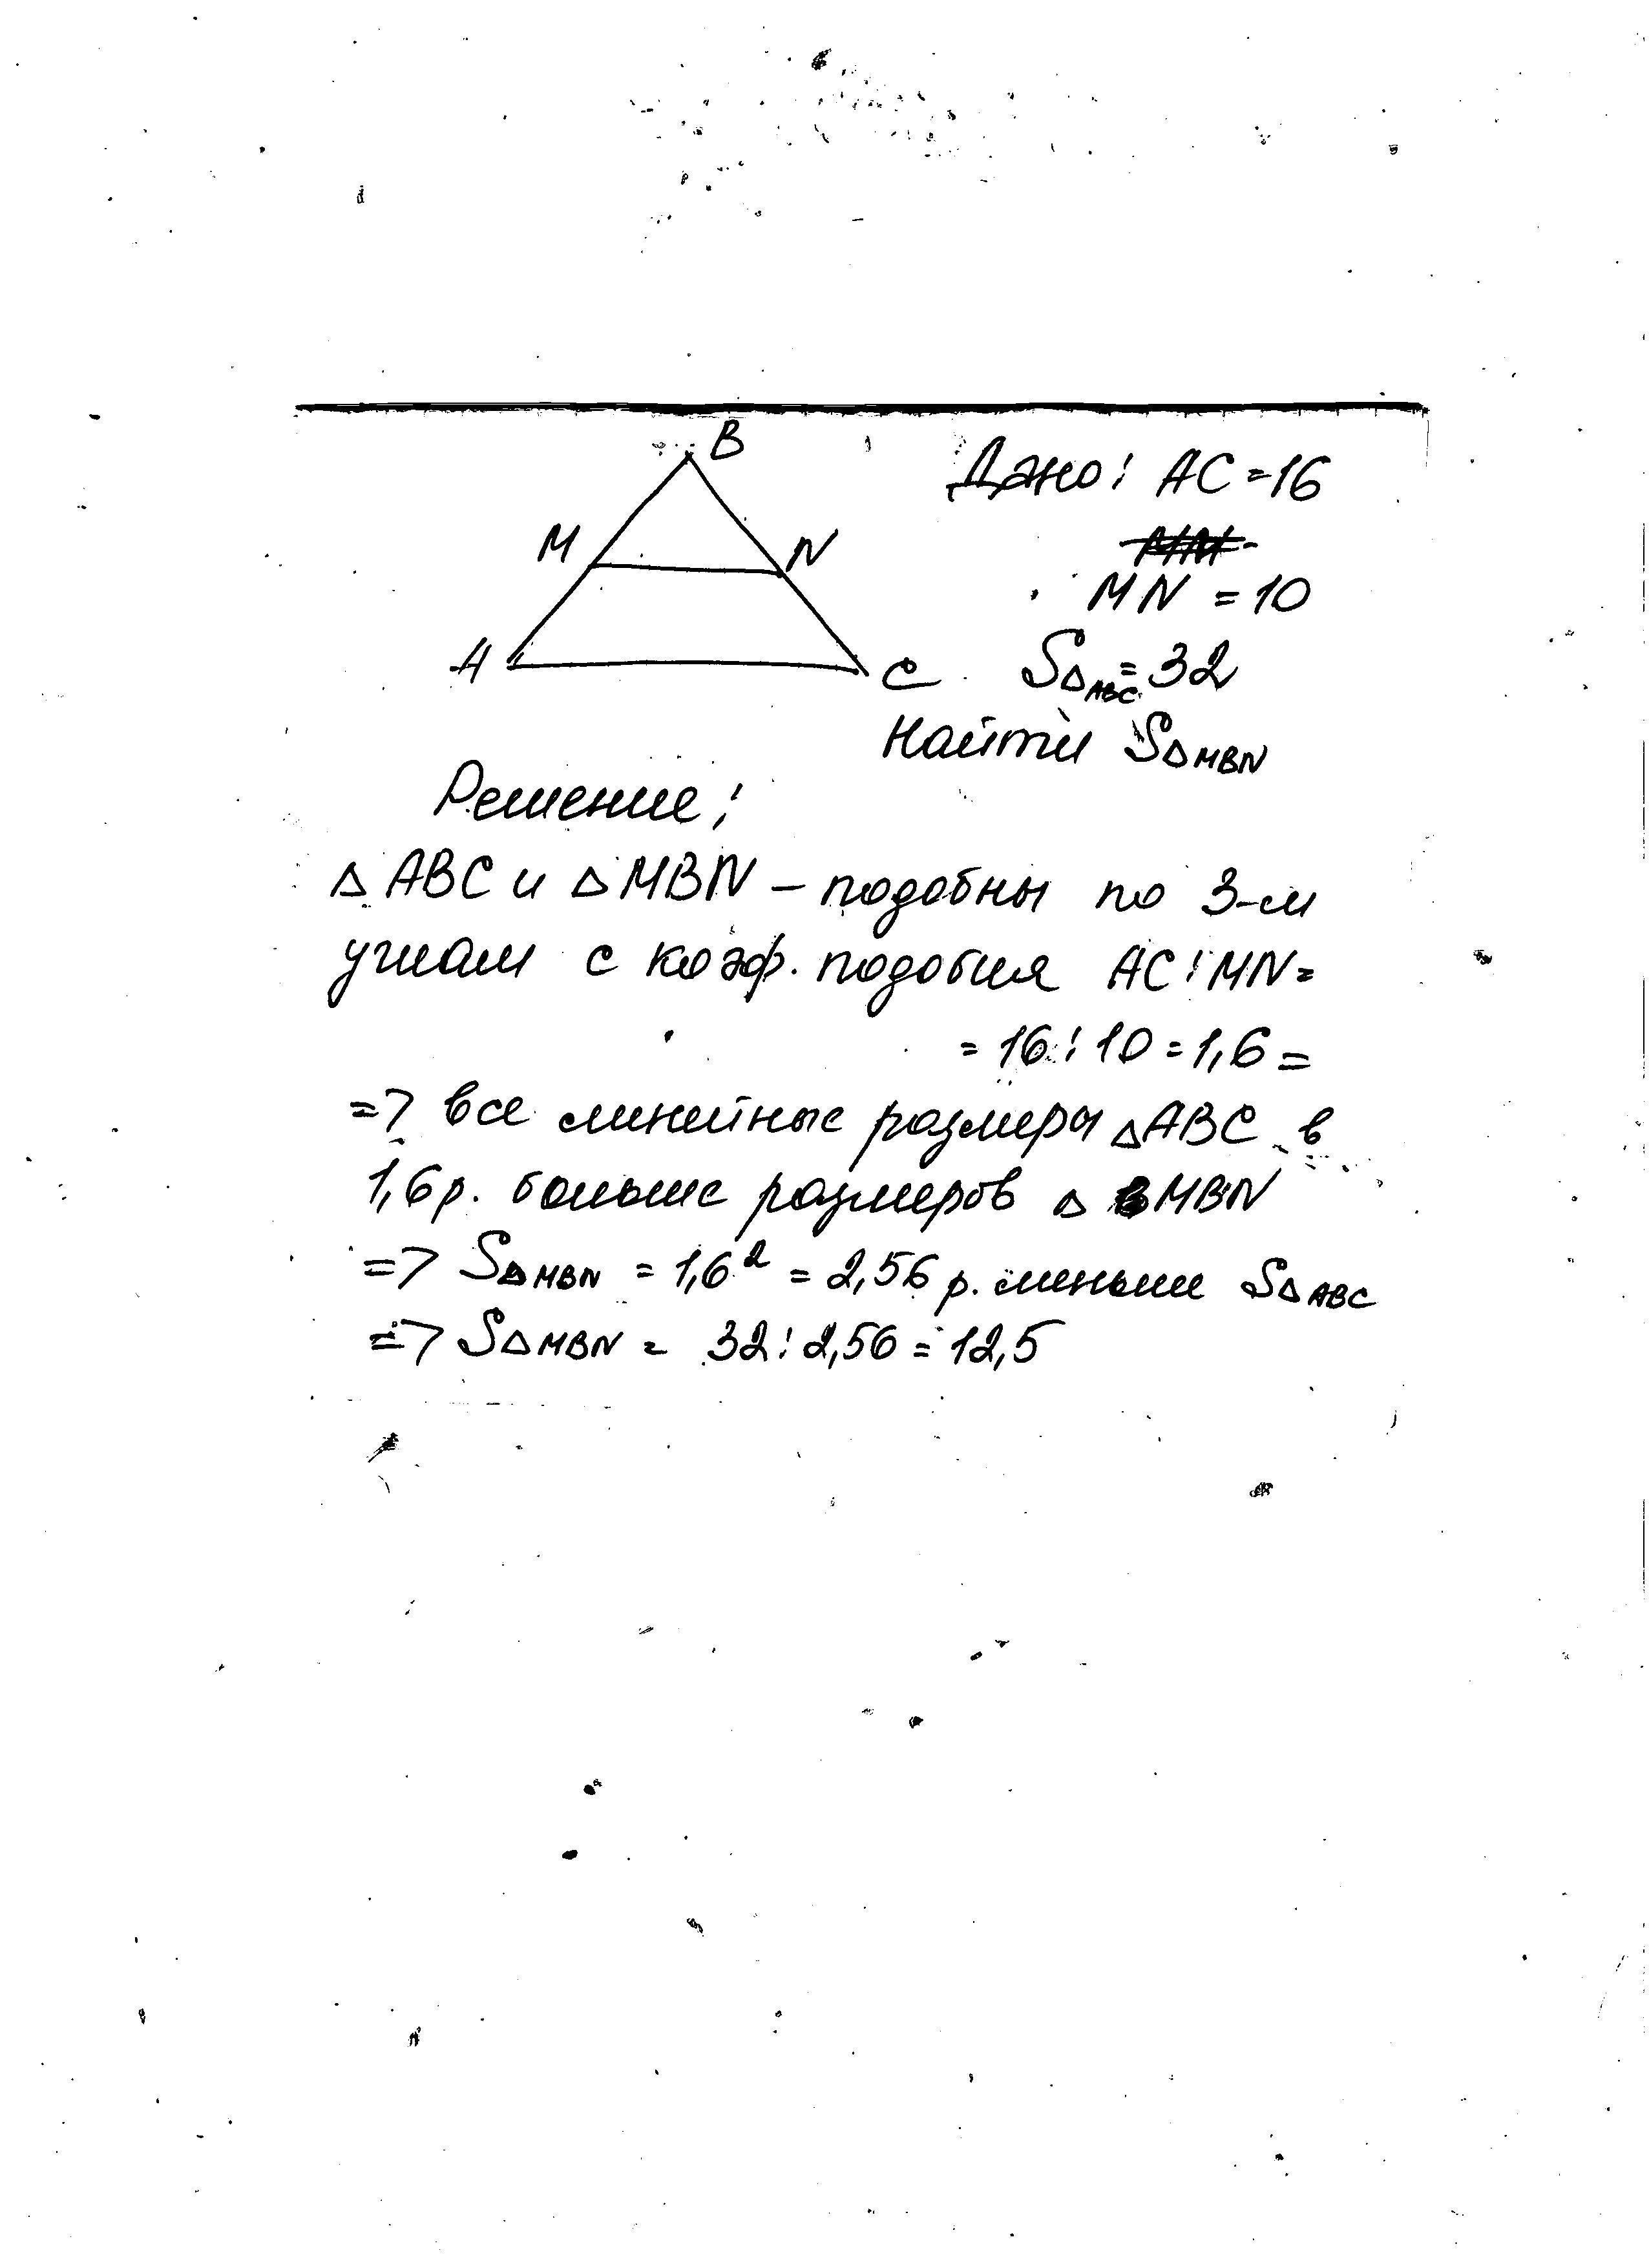 B
Дано: AC = 16
M
N
MN = 10
A
C
S△ABC = 32
Найти S△MBN
Решение:
△ABC и △MBN – подобны по 3-м
углам с коэф. подобия AC:MN=
= 16:10 = 1,6 =
=> все линейные размеры △ABC в
1,6 р. больше размеров △ MBN
=> S△MBN = 1,6² = 2,56 р. меньше S△ABC
=> S△MBN = 32:2,56 = 12,5